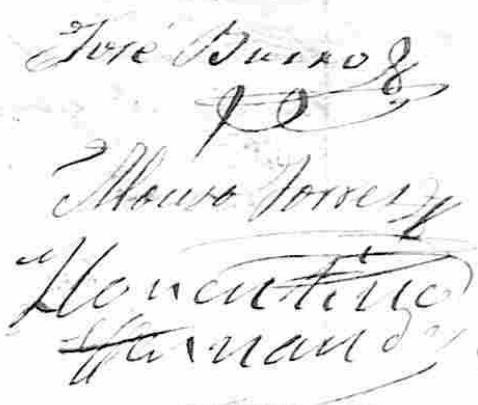 José Bueno
Alonso Torres
Florentino
Hernandez